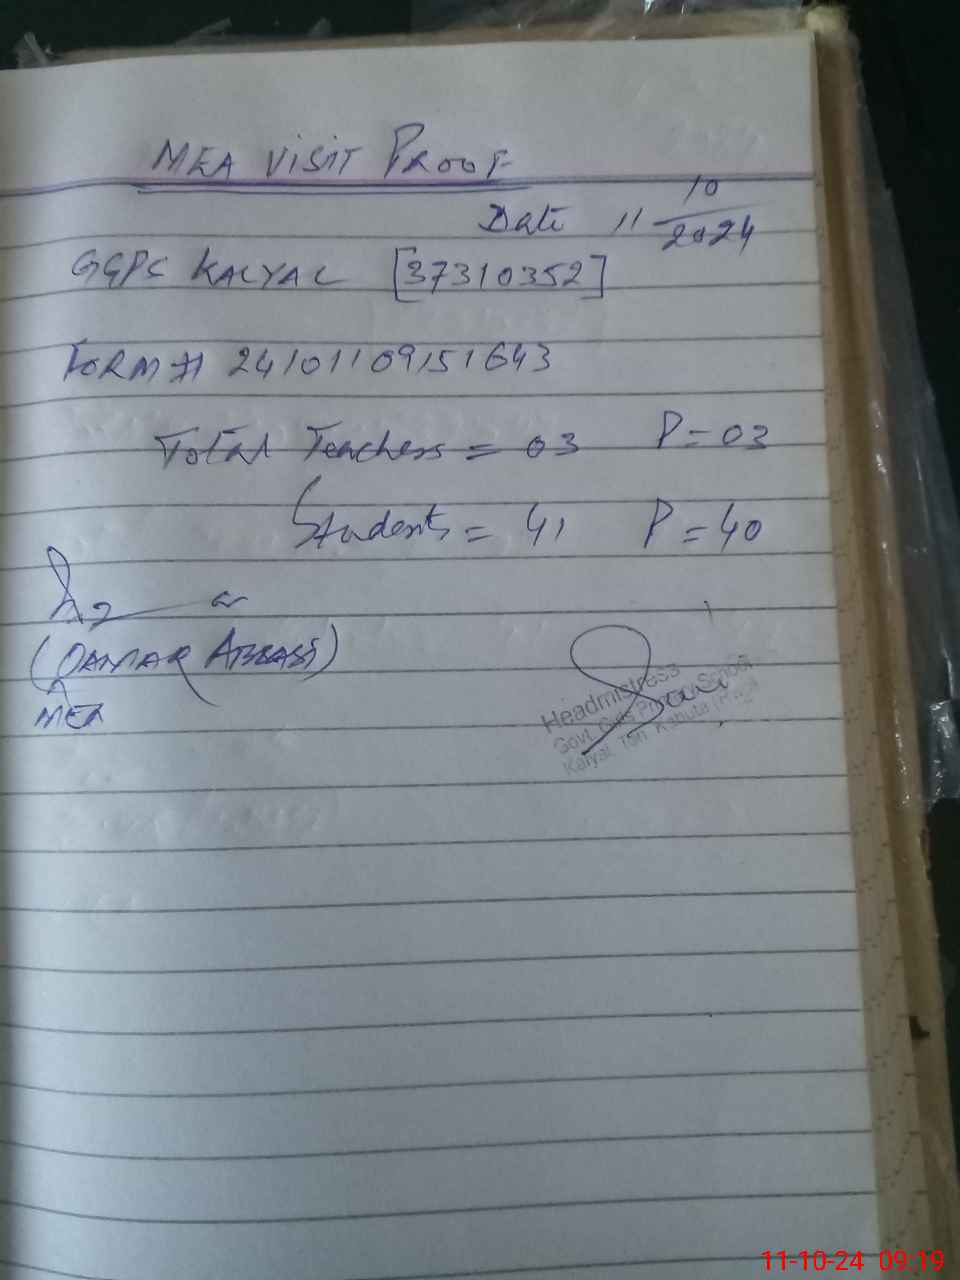 MEA VISIT PROOF
Date 11/10/2024
GGPS KALYAL [37310352]
FORM # 24101109151643
Total Teachers = 03 P = 03
Students = 41 P = 40
(QAMAR ABBASI)
MEA
Headmistress
Govt. Girls Primary School
Kalyal Teh Kahuta
11-10-24 09:19